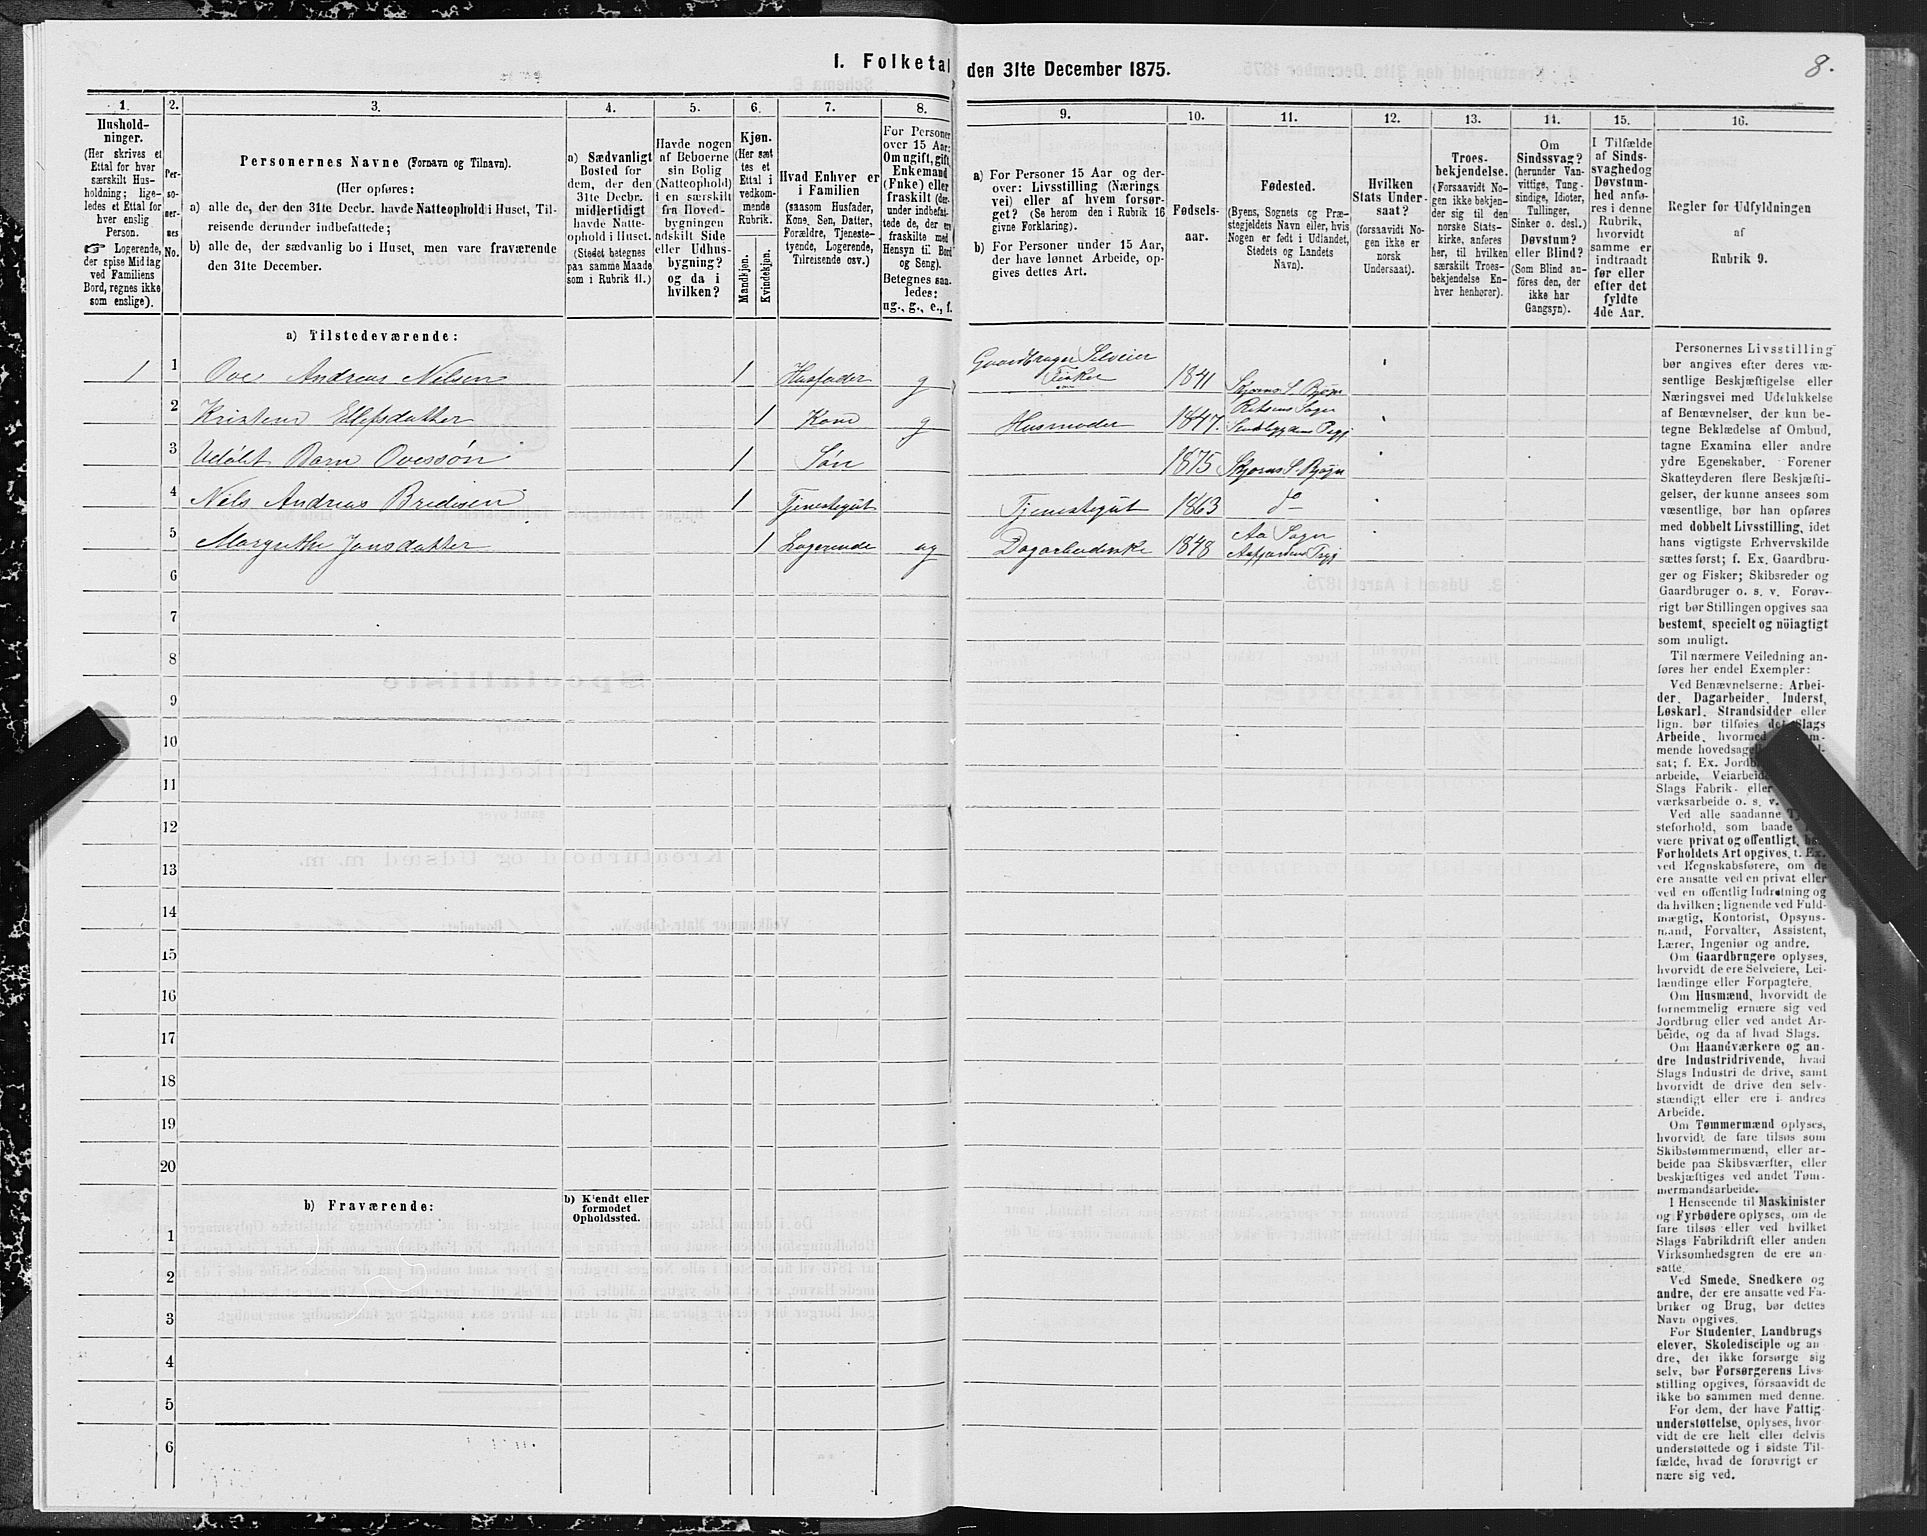 1. Folketal den 31te December 1875.
8.
1.
Hushold-
ninger.
(Her skrives et
Ettal for hver
særskilt Hus-
holdning; lige-
ledes et Ettal for
hver enslig
Person.
☞ Logerende,
der spise Middag
ved Familiens
Bord, regnes ikke
som enslige).
2.
Per-
so-
ner-
nes
No.
3.
Personernes Navne (Fornavn og Tilnavn).
(Her opføres:
a) alle de, der den 31te Decbr. havde Natteophold i Huset, Til-
reisende derunder indbefattede;
b) alle de, der sædvanlig bo i Huset, men vare fraværende
den 31te December.
4.
a) Sædvanligt
Bosted for
dem, der den
31te Decbr.
midlertidigt
havde Natte-
ophold i Huset.
(Stedet betegnes
paa samme Maade
som i Rubrik 11.)
5.
Havde nogen
af Beboerne
sin Bolig
(Natteophold)
i en særskilt
fra Hoved-
bygningen
adskilt Side
eller Udhus-
bygning?
og da i
hvilken?
6.
Kjøn.
(Her sæt
tes et
Ettal i
vedkom-
mende
Rubrik.
Mandkjøn.
Kvindekjøn.
7.
Hvad Enhver er
i Familien
(saasom Husfader,
Kone, Søn, Datter,
Forældre, Tjeneste-
tyende, Logerende,
Tilreisende osv.)
8.
For Personer
over 15 Aar:
Om ugift, gift,
Enkemand
(Enke) eller
fraskilt (der-
under indbefat-
tede de, der ere
fraskilte med
Hensyn til Bord
og Seng).
Betegnes saa-
ledes:
ug., g., e., f.
9.
a) For Personer 15 Aar og der-
over: Livsstilling (Nærings
vei) eller af hvem forsør-
get? (Se herom den i Rubrik 16
givne Forklaring).
b) For Personer under 15 Aar,
der have lønnet Arbeide, op-
gives dettes Art.
10.
Fødsels-
aar.
11.
Fødested.
(Byens, Sognets og Præ-
stegjeldets Navn eller, hvis
Nogen er født i Udlandet,
Stedets og Landets
Navn).
12.
Hvilken
Stats Under-
saat?
(forsaavidt No-
gen ikke er
norsk
Undersaat).
13.
Troes-
bekjendelse.
(Forsaavidt No-
gen ikke bekjen-
der sig til den
norske Stats-
kirke, anføres
her, til hvilken
særskilt Troes-
bekjendelse En-
hver henhører).
14.
Om
Sindssvag?
(herunder Van-
vittige, Tung-
sindige, Idioter,
Tullinger,
Sinker o. desl.)
Døvstum?
eller Blind?
(Som Blind an-
føres den, der
ikke har
Gangsyn).
15.
I Tilfælde
af Sinds-
svaghed og
Døvstum-
hed anfø-
res i denne
Rubrik,
hvorvidt
samme er
indtraadt
før eller
efter det
fyldte
4de Aar.
16.
Regler for Udfyldningen
af
Rubrik 9.
a) Tilstedeværende:
1 1 Ove Andreas Nelsen 1 Husfader g Gaardbruger Selveier
Fisker 1841 Skjørns S. Bjøgn
2 Kristene Ellefsdatter 1 Kone g Husmoder 1847. Rissens Sogn
Stadsbygdens Prgj
3 Udøbt Barn Ovessøn 1 Søn 1875 Skjørns S. Bjøgn
4 Nels Andreas Bredesen 1 Tjenestegut Tjenestegut 1863 do
5 Margrethe Jonsdatter 1 Logerende ug Dagarbeiderske 1848 Aa Sogn
Aafjordens Prgj
6
7
8
9
10
11
12
13
14
15
16
17
18
19
20
b) Fraværende:
b) Kjendt eller
formodet
Opholdssted.
1
2
3
4
5
6
Personernes Livsstilling
bør angives efter deres væ-
sentlige Beskjæftigelse eller
Næringsvei med Udelukkelse
af Benævnelser, der kun be-
tegne Beklædelse af Ombud,
tagne Examina eller andre
ydre Egenskaber. Forener
Skatteyderen flere Beskjæfti-
gelser, der kunne ansees som
væsentlige, bør han opføres
med dobbelt Livsstilling, idet
hans vigtigste Erhvervskilde
sættes først; f. Ex. Gaardbru-
ger og Fisker; Skibsreder og
Gaardbruger o. s. v. Forøv-
rigt bør Stillingen opgives saa
bestemt, specielt og nøiagtigt
som muligt.
Til nærmere Veiledning an-
føres her endel Exempler:
Ved Benævnelserne: Arbei-
der, Dagarbeider, Inderst,
Løskarl, Strandsidder eller
lign. bør tilføies det Slags
Arbeide, hvormed
mende hovedsage
sat; f. Ex. Jord
arbeide, Veiarbeide
Slags Fabrik- eller
værksarbeide o. s. v.
Ved alle saadanne
steforhold, som baade
være privat og offentligt, bør
Forholdets Art opgives, t. Ex.
ved Regnskabsførere, om de
ere ansatte ved en privat eller
ved en offentlig Indretning og
da hvilken; lignende ved Fuld-
mægtig, Kontorist, Opsyns-
mand, Forvalter, Assistent,
Lærer, Ingeniør og andre.
Om Gaardbrugere oplyses,
hvorvidt de ere Selveiere, Lei-
lændinge eller Forpagtere.
Om Husmænd, hvorvidt de
fornemmelig ernære sig ved
Jordbrug eller ved andet Ar-
beide, og da af hvad Slags.
Om Haandværkere og an-
dre Industridrivende, hvad
Slags Industri de drive, samt
hvorvidt de drive den selv-
stændigt eller ere i andres
Arbeide.
Om Tømmermænd oplyses,
hvorvidt de fare tilsøs som
Skibstømmermænd, eller ar-
beide paa Skibsværfter, eller
beskjæftiges ved andet Tøm-
mermandsarbeide.
I Henseende til Maskinister
og Fyrbødere oplyses, om de
fare tilsøs eller ved hvilket
Slags Fabrikdrift eller anden
Virksomhedsgren de ere an-
satte.
Ved Smede, Snedkere og
andre, der ere ansatte ved Fa-
briker og Brug, bør dettes
Navn opgives.
For Studenter, Landbrugs
elever, Skoledisciple og an
dre, der ikke forsørge sig
selv, bør Forsørgerens Livs-
stilling opgives, forsaavidt de
ikke bo sammen med denne.
For dem, der have Fattig
understøttelse, oplyses, hvor-
vidt de ere helt eller delvis
understøttede og i sidste Til-
fælde, hvad de forøvrigt er
nære sig ved.